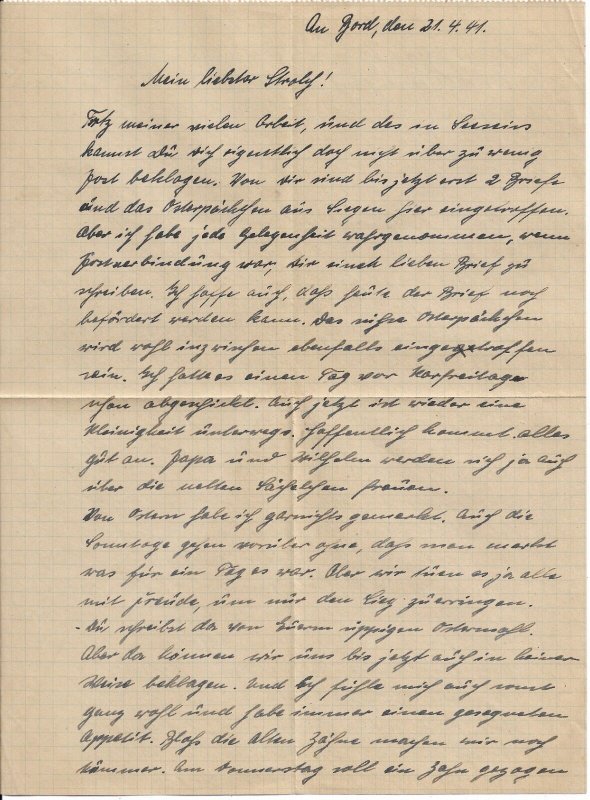 An Bord, den 21.4.41.
Mein liebster Strolch!
Trotz meiner vielen Arbeit, und des in Seeseins
kannst Du Dich eigentlich doch nicht über zu wenig
Post beklagen. Von Dir sind bis jetzt erst 2 Briefe
und das Osterpäckchen aus Siegen hier eingetroffen.
Aber ich habe jede Gelegenheit wahrgenommen, wenn
Postverbindung war, Dir einen lieben Brief zu
schreiben. Ich hoffe auch, dass heute der Brief noch
befördert werden kann. Das süsse Osterpäckchen
wird wohl inzwischen ebenfalls eingetroffen
sein. Ich hatte es einen Tag vor Karfreitag
schon abgeschickt. Auch jetzt ist wieder eine
Kleinigkeit unterwegs. Hoffentlich kommt alles
gut an. Papa und Wilhelm werden sich ja auch
über die netten Sächelchen freuen.
Von Ostern habe ich garnichts gemerkt. Auch die
Sonntage gehen vorüber ohne, dass man merkt
was für ein Tag es war. Aber wir tuen es ja alle
mit Freude, um nur den Sieg zu erringen.
- Du schreibst da von Euerm üppigen Ostermahl.
Aber da können wir uns bis jetzt auch in keiner
Weise beklagen. Und ich fühle mich auch sonst
ganz wohl und habe immer einen gesegneten
Appetit. Bloß die alten Zähne machen mir noch
Kummer. Am Donnerstag soll ein Zahn gezogen